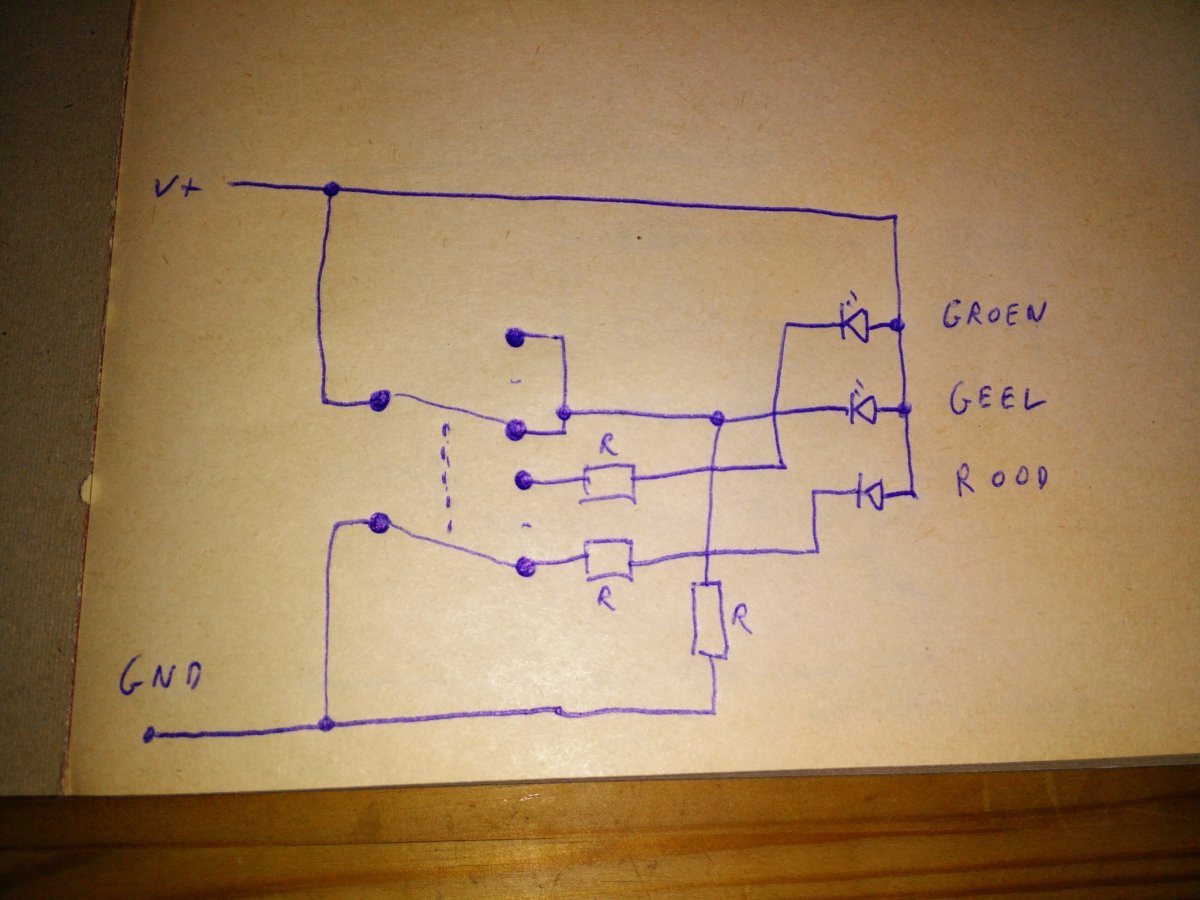 V+
GROEN
GEEL
R
ROOD
R
R
GND